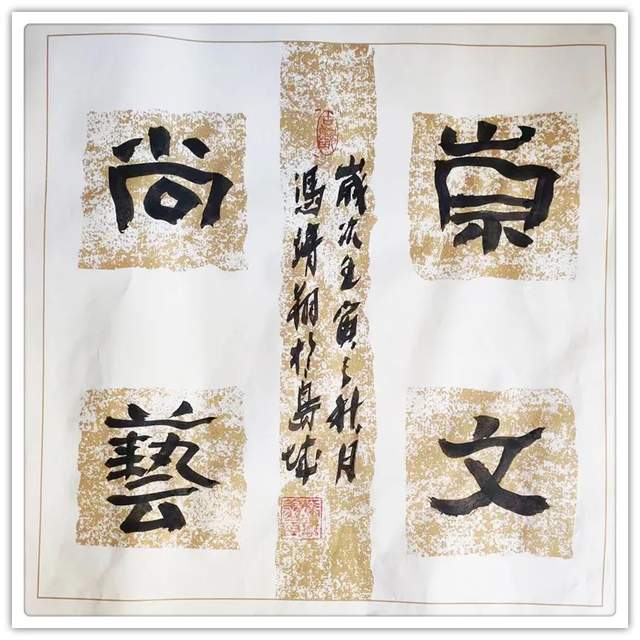 崇文
尚藝
歲次壬寅之秋月
馮博翔於島城